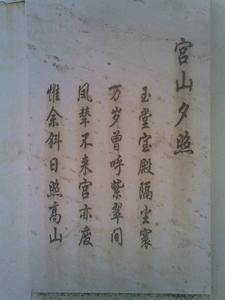 宫山夕照
玉堂宝殿隔尘寰
万岁曾呼紫翠间
凤辇不来宫亦废
惟余斜日照高山